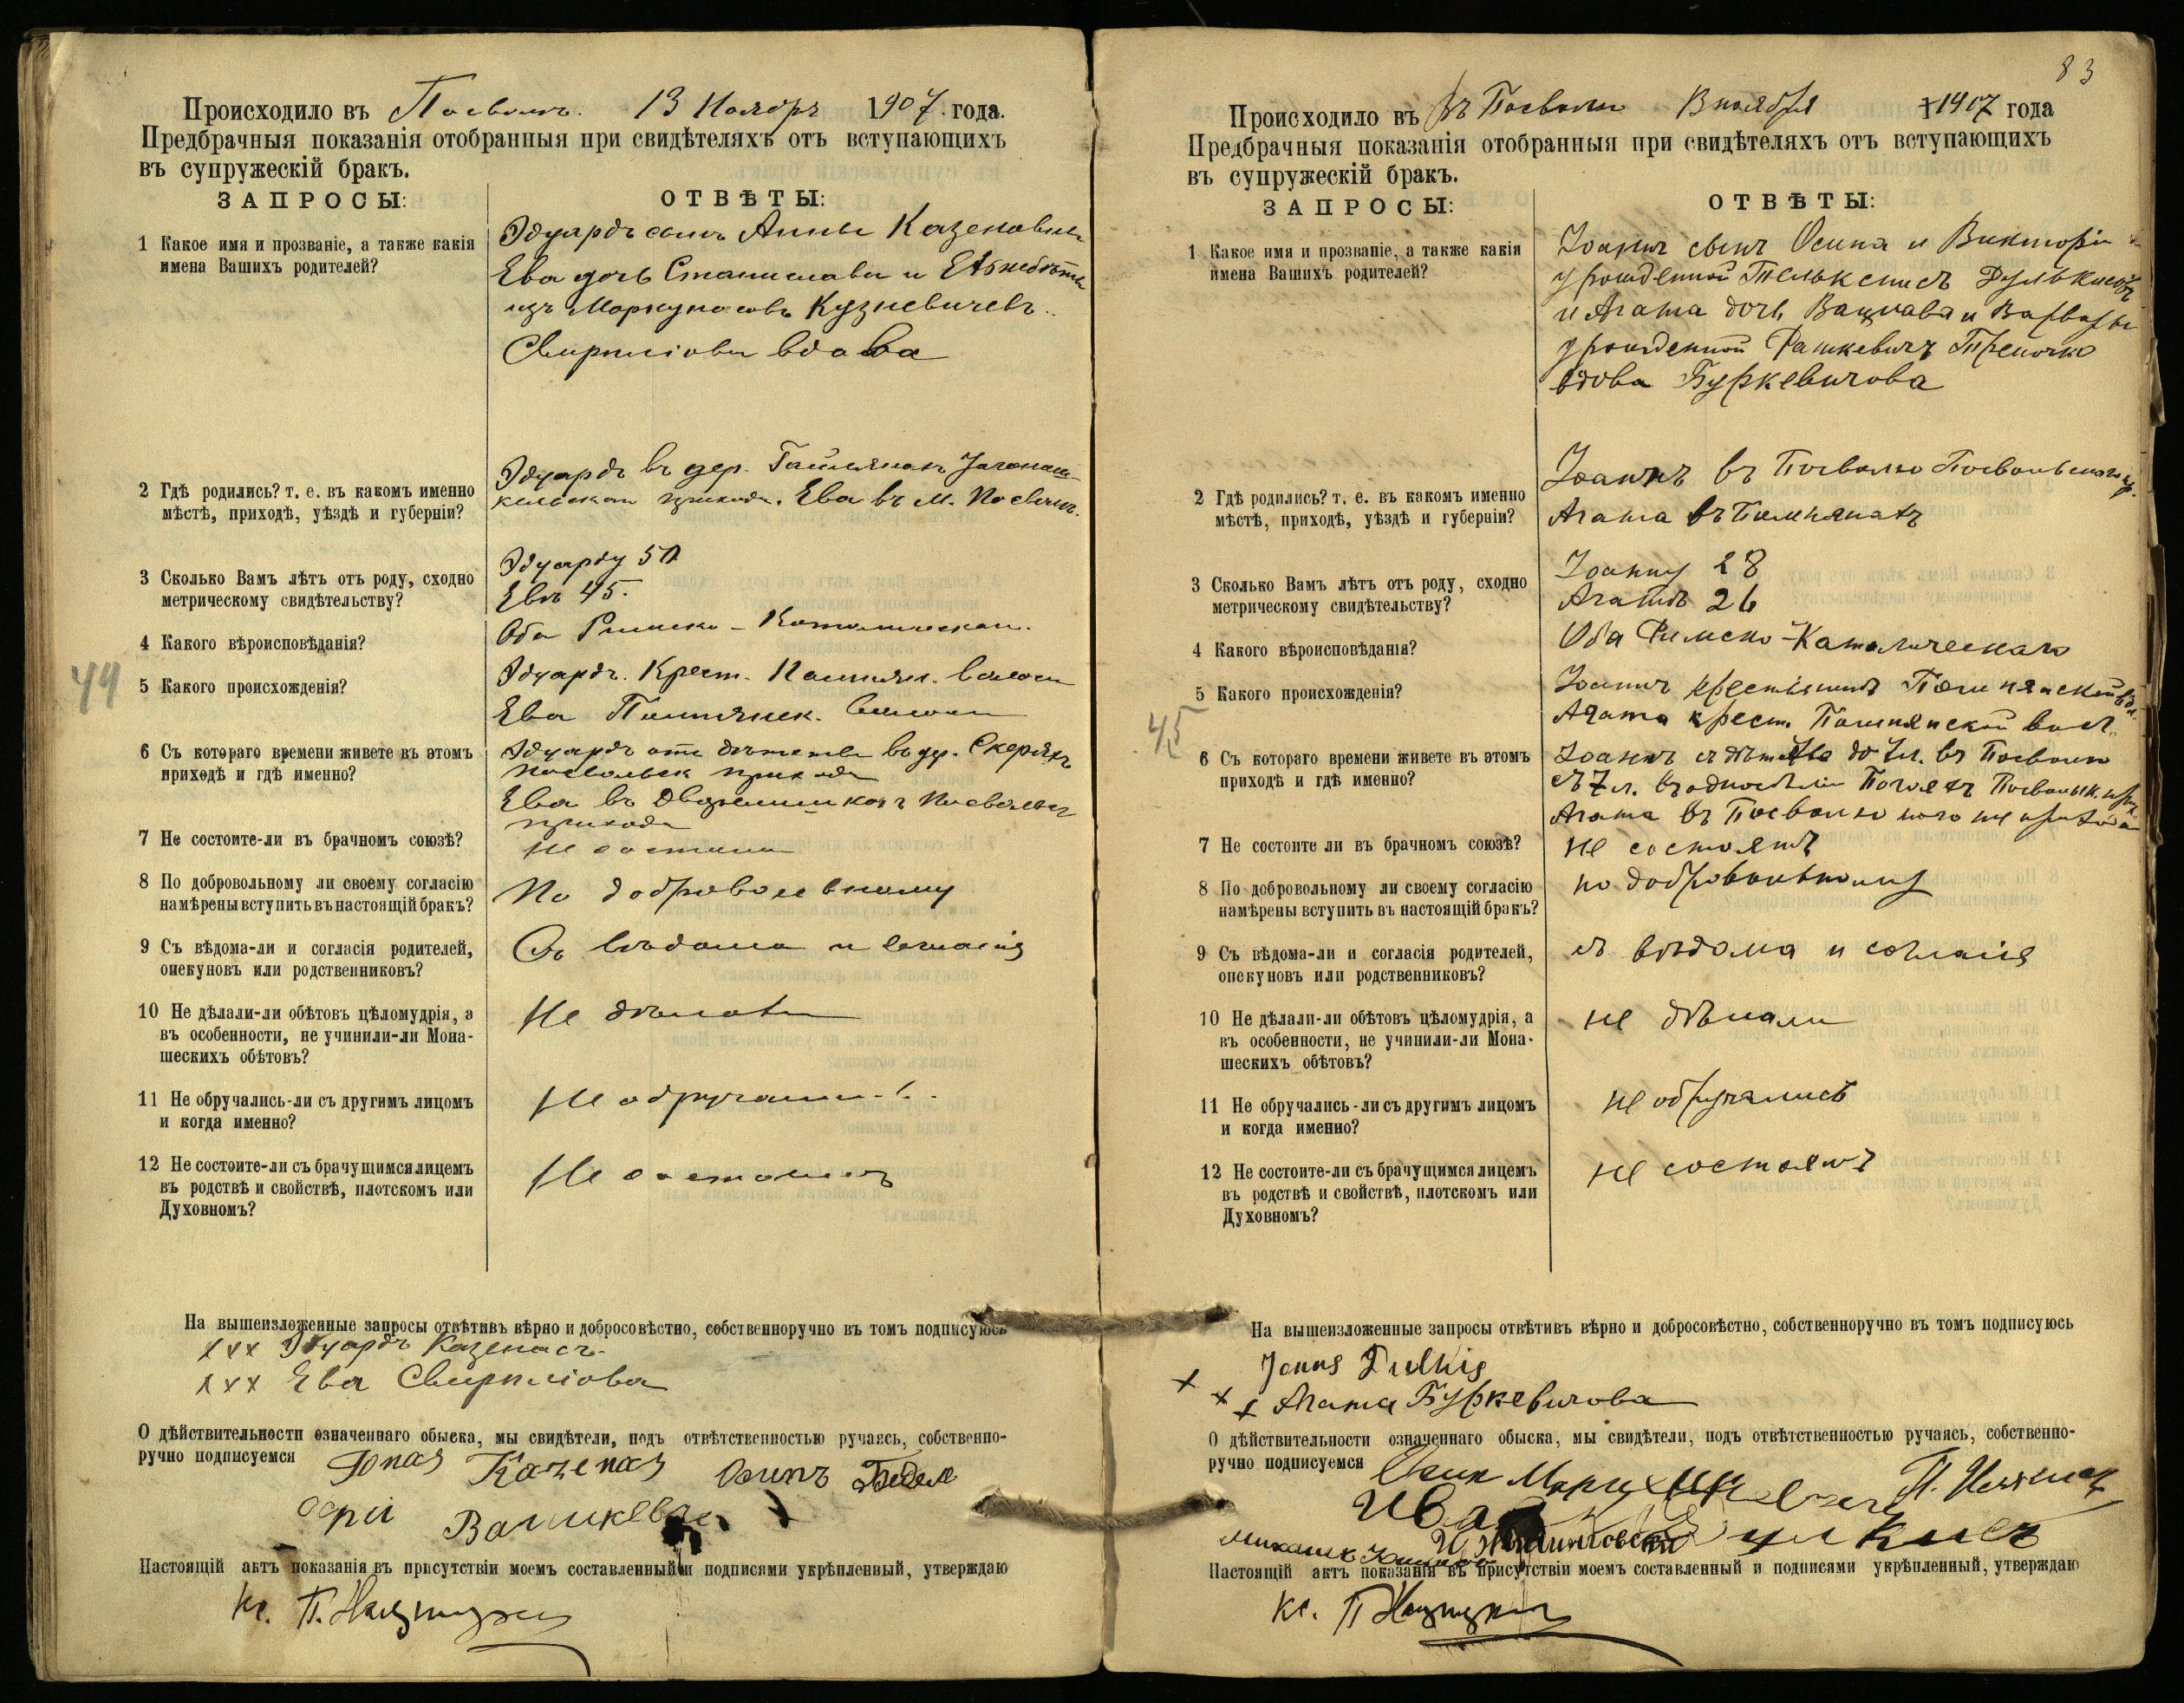 Происходило въ Посволѣ. 13 Ноября 1907. года.
Предбрачныя показанія отобранныя при свидѣтеляхъ отъ вступающихъ
въ супружескій бракъ.
ЗАПРОСЫ:
ОТВѢТЫ:
1 Какое имя и прозваніе, а также какія
имена Вашихъ родителей?
Эдуардъ сынъ Анны Казеновны
Ева дочь Станислава и Елисаветы
изъ Кузневичевъ
Свирплiова вдова
2 Гдѣ родились? т. е. въ какомъ именно
мѣстѣ, приходѣ, уѣздѣ и губерніи?
Эдуардъ въ дер.
прихода. Ева въ м. Посволѣ.
3 Сколько Вамъ лѣтъ отъ роду, сходно
метрическому свидѣтельству?
Эдуарду 50
Евѣ 45.
4 Какого вѣроисповѣданія?
Оба Римско-Католическаго.
5 Какого происхожденія?
Эдуардъ. Крест. волости
Ева волости
6 Съ котораго времени живете въ этомъ
приходѣ и гдѣ именно?
Эдуардъ отъ дѣтства въ дер.
Посвольск прихода
Ева въ Посвольск
прихода
7 Не состоите-ли въ брачномъ союзѣ?
Не состоятъ
8 По добровольному ли своему согласію
намѣрены вступить въ настоящій бракъ?
По добровольному
9 Съ вѣдома-ли и согласія родителей,
опекуновъ или родственниковъ?
Съ вѣдома и согласія
10 Не дѣлали-ли обѣтовъ цѣломудрія, а
въ особенности, не учинили-ли Мона-
шескихъ обѣтовъ?
Не дѣлали
11 Не обручались-ли съ другимъ лицомъ
и когда именно?
Не обручались.
12 Не состоите-ли съ брачущимся лицемъ
въ родствѣ и свойствѣ, плотскомъ или
Духовномъ?
Не состоятъ
44
На вышеизложенные запросы отвѣтивъ вѣрно и добросовѣстно, собственноручно въ томъ подписуюсь
xxx Эдуардъ Казенасъ
xxx Ева Свирплiова
О дѣйствительности означеннаго обыска, мы свидѣтели, подъ отвѣтственностью ручаясь, собственно-
ручно подписуемся Юпаз Казепаз Осипъ
Настоящій актъ показанія въ присутствіи моемъ составленный и подписями укрѣпленный, утверждаю
Кс. П.
83
Происходило въ въ Посволи 13 ноября 1907 года
Предбрачныя показанія отобранныя при свидѣтеляхъ отъ вступающихъ
въ супружескій бракъ.
ЗАПРОСЫ:
ОТВѢТЫ:
1 Какое имя и прозваніе, а также какія
имена Вашихъ родителей?
Іоаннъ сынъ Осипа и Викторіи
урожденной Дулькисъ
и Агата дочь Вацлава и Варвары
урожденной Рашкевичъ Треночко
вдова Буркевичова
2 Гдѣ родились? т. е. въ какомъ именно
мѣстѣ, приходѣ, уѣздѣ и губерніи?
Іоаннъ въ Посволю Посвольскаго пр.
Агата въ
3 Сколько Вамъ лѣтъ отъ роду, сходно
метрическому свидѣтельству?
Іоанну 28
Агатѣ 26
4 Какого вѣроисповѣданія?
Оба Римско-Католическаго
5 Какого происхожденія?
Іоаннъ крестьянинъ вол.
Агата крест. вол.
45
6 Съ котораго времени живете въ этомъ
приходѣ и гдѣ именно?
Іоаннъ съ дѣтства до 7 л. въ Посволю
съ 7 л. въ Посвольск. прих.
Агата въ Посволю того же прихода
7 Не состоите ли въ брачномъ союзѣ?
не состоятъ
8 По добровольному ли своему согласію
намѣрены вступить въ настоящій бракъ?
по добровольному
9 Съ вѣдома-ли и согласія родителей,
опекуновъ или родственниковъ?
съ вѣдома и согласія
10 Не дѣлали-ли обѣтовъ цѣломудрія, а
въ особенности, не учинили-ли Мона-
шескихъ обѣтовъ?
не дѣлали
11 Не обручались-ли съ другимъ лицомъ
и когда именно?
не обручались
12 Не состоите-ли съ брачущимся лицемъ
въ родствѣ и свойствѣ, плотскомъ или
Духовномъ?
не состоятъ
На вышеизложенные запросы отвѣтивъ вѣрно и добросовѣстно, собственноручно въ томъ подписуюсь
Jonas Dulkis
x x x Агата Буркевичова
О дѣйствительности означеннаго обыска, мы свидѣтели, подъ отвѣтственностью ручаясь, собственно-
ручно подписуемся
Настоящій актъ показанія въ присутствіи моемъ составленный и подписями укрѣпленный, утверждаю
Кс. П